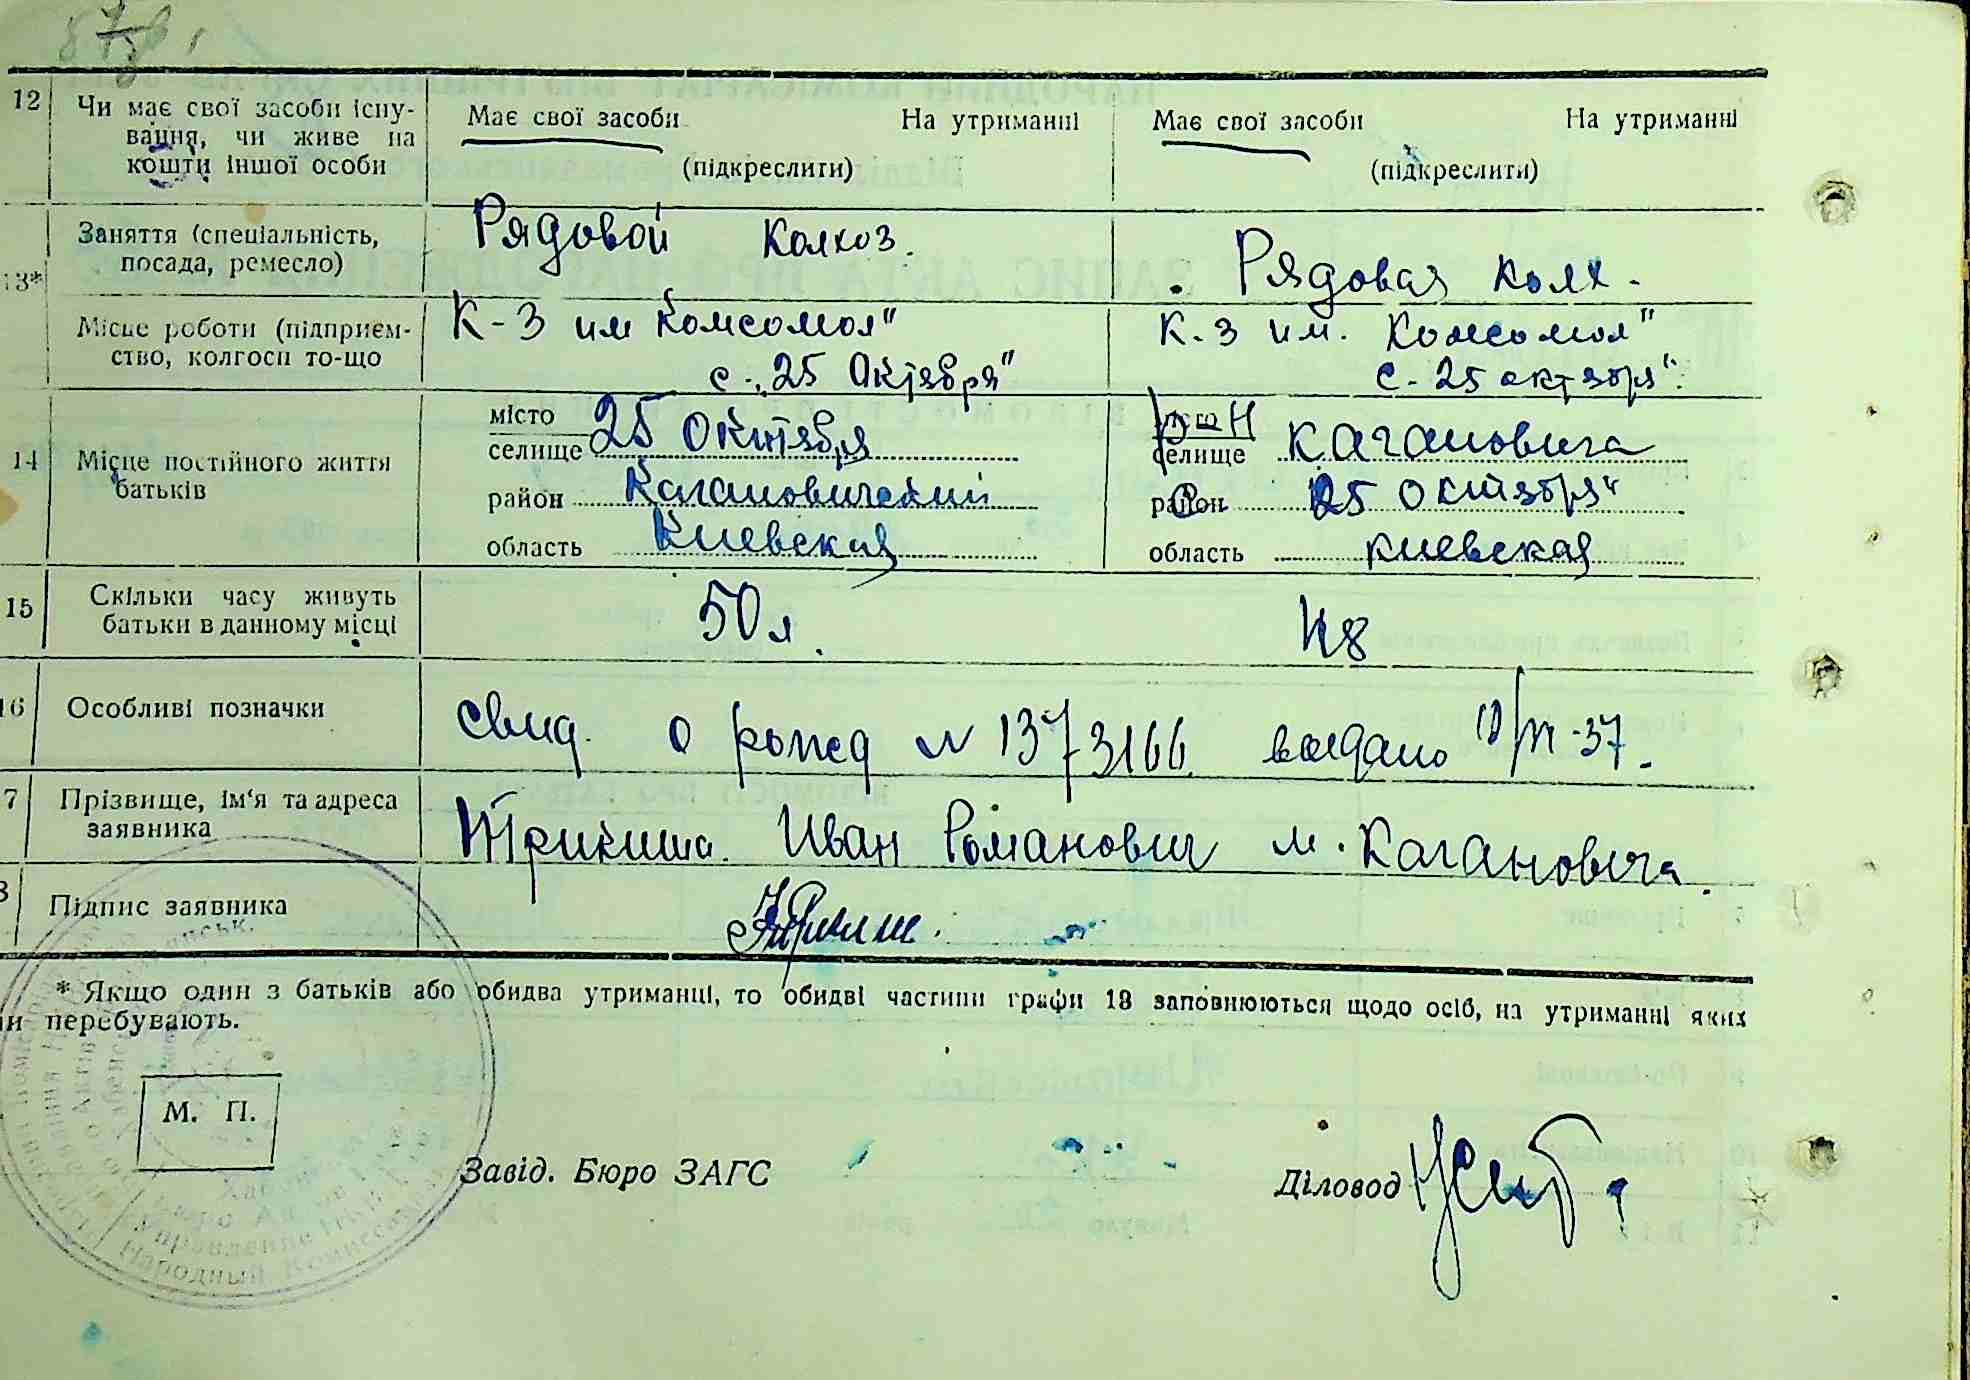 12 Чи має свої засоби існу-
вання, чи живе на
кошти іншої особи
Має свої засоби На утриманні
(підкреслити)
Має свої засоби На утриманні
(підкреслити)
13*
Заняття (спеціальність,
посада, ремесло)
Рядовой колхоз.
Рядовая колх.
Місце роботи (підприєм-
ство, колгосп то-що
К-З им Комсомол"
с. „25 Октября"
К.З им. Комсомол"
с. 25 октября".
14 Місце постійного життя
батьків
місто
селище 25 Октября
район Кагановический
область Киевская
селище Кагановича
район 25 Октября"
область киевская
15 Скільки часу живуть
батьки в данному місці
50 л.
48
16 Особливі позначки
свид. о рожд N 1373166 выдано
7 Прізвище, ім'я та адреса
заявника
Иван Романович м. Кагановича.
8 Підпис заявника
* Якщо один з батьків або обидва утриманці, то обидві частини графи 13 заповнюються щодо осіб, на утриманні яких
ни перебувають.
М. П.
Завід. Бюро ЗАГС
Діловод
Народный Комиссариат